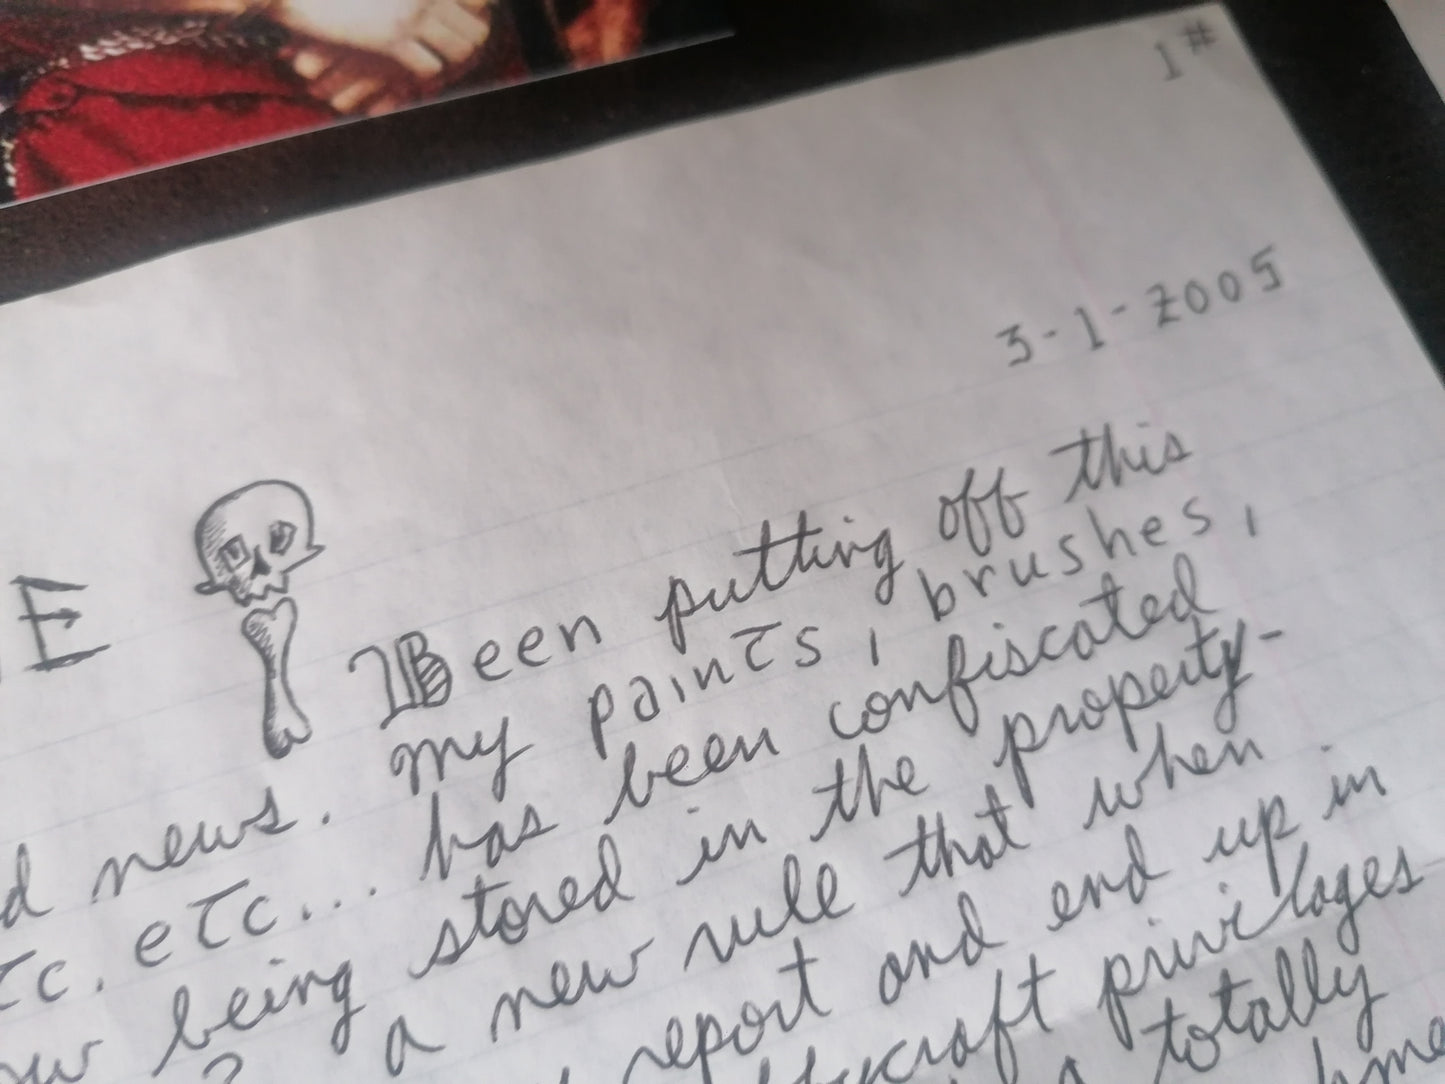 1#
3-1-2005
E Been putting off this
d news. my paints, brushes,
etc... has been confiscated
being stored in the property-
a new rule that when
report and end up in
privilages
totally